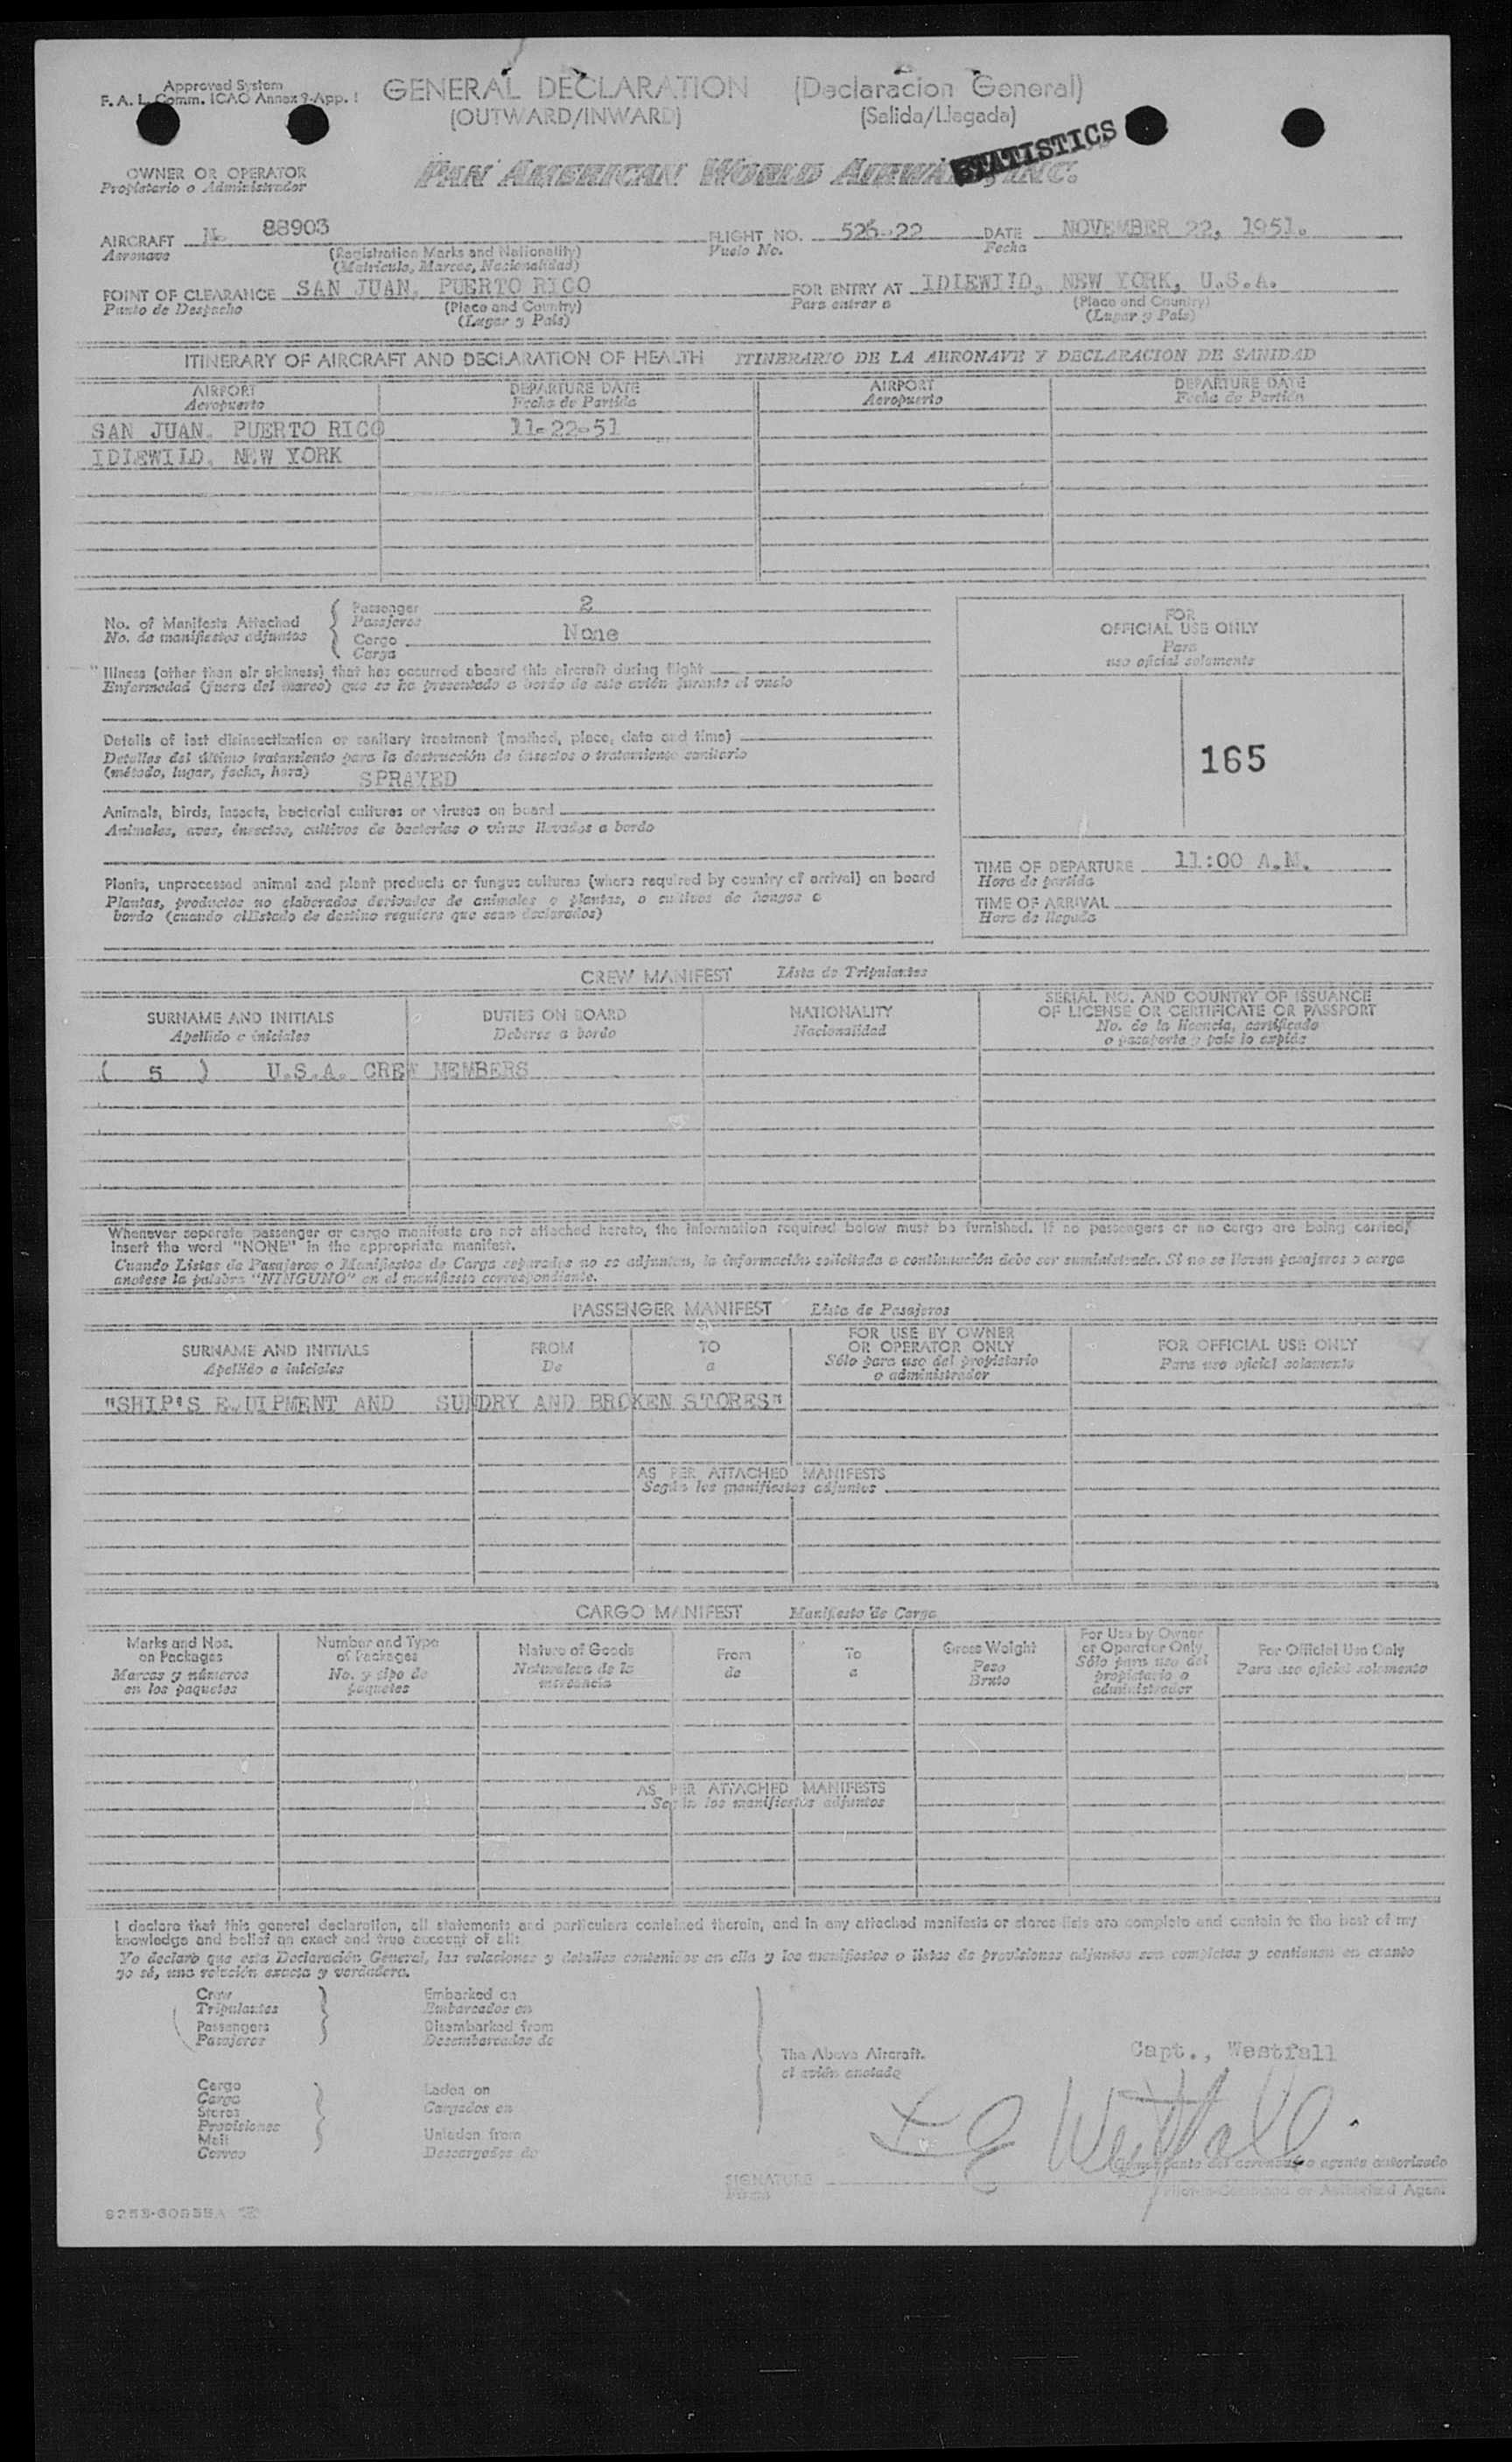 Approved System
F. A. L. Comm. ICAO Annex 9-App. 1
GENERAL DECLARATION (Declaracion General)
(OUTWARD/INWARD) (Salida/Llegada)
STATISTICS
OWNER OR OPERATOR
Propietario o Administrador
PAN AMERICAN WORLD AIRWAYS, INC.
AIRCRAFT N. 88903 FLIGHT NO. DATE NOVEMBER 22, 1951.
Aeronave (Registration Marks and Nationality) Vuelo No. Fecha
(Matricula, Marcas, Nacionalidad)
POINT OF CLEARANCE SAN JUAN, PUERTO RICO FOR ENTRY AT IDLEWILD, NEW YORK, U.S.A.
Punto de Despacho (Place and Country) Para entrar a (Place and Country)
(Lugar y Pais) (Lugar y Pais)
ITINERARY OF AIRCRAFT AND DECLARATION OF HEALTH ITINERARIO DE LA AERONAVE Y DECLARACION DE SANIDAD
AIRPORT DEPARTURE DATE AIRPORT DEPARTURE DATE
Aeropuerto Fecha de Partida Aeropuerto Fecha de Partida
SAN JUAN, PUERTO RICO 11-22-51
IDLEWILD, NEW YORK
No. of Manifests Attached
No. de manifiestos adjuntos
Passenger 2
Pasajeros
Cargo None
Carga
Illness (other than air sickness) that has occurred aboard this aircraft during flight
Enfermedad (fuera del mareo) que se ha presentado a bordo de este avión durante el vuelo
Details of last disinsectization or sanitary treatment (method, place, date and time)
Detalles del último tratamiento para la destrucción de insectos o tratamiento sanitario
(método, lugar, fecha, hora) SPRAYED
Animals, birds, insects, bacterial cultures or viruses on board
Animales, aves, insectos, cultivos de bacterias o virus llevados a bordo
Plants, unprocessed animal and plant products or fungus cultures (where required by country of arrival) on board
Plantas, productos no elaborados derivados de animales o plantas, o cultivos de hongos a
bordo (cuando el Estado de destino requiere que sean declarados)
FOR
OFFICIAL USE ONLY
Para
uso oficial solamente
165
TIME OF DEPARTURE 11:00 A.M.
Hora de partida
TIME OF ARRIVAL
Hora de llegada
CREW MANIFEST Lista de Tripulantes
SURNAME AND INITIALS DUTIES ON BOARD NATIONALITY SERIAL NO. AND COUNTRY OF ISSUANCE
OF LICENSE OR CERTIFICATE OR PASSPORT
Apellido e iniciales Deberes a bordo Nacionalidad No. de la licencia, certificado
o pasaporte y pais lo expide
( 5 ) U.S.A. CREW MEMBERS
Whenever separate passenger or cargo manifests are not attached hereto, the information required below must be furnished. If no passengers or no cargo are being carried,
insert the word "NONE" in the appropriate manifest.
Cuando Listas de Pasajeros o Manifiestos de Carga separados no se adjunten, la información solicitada a continuación debe ser suministrada. Si no se llevan pasajeros o carga
anotese la palabra "NINGUNO" en el manifiesto correspondiente.
PASSENGER MANIFEST Lista de Pasajeros
SURNAME AND INITIALS FROM TO FOR USE BY OWNER
OR OPERATOR ONLY FOR OFFICIAL USE ONLY
Apellido e iniciales De a Sólo para uso del propietario
o administrador Para uso oficial solamente
"SHIP'S EQUIPMENT AND SUNDRY AND BROKEN STORES"
AS PER ATTACHED MANIFESTS
Según los manifiestos adjuntos
CARGO MANIFEST Manifiesto de Carga
Marks and Nos.
on Packages
Marcas y números
en los paquetes
Number and Type
of Packages
No. y tipo de
paquetes
Nature of Goods
Naturaleza de la
mercancia
From
de
To
a
Gross Weight
Peso
Bruto
For Use by Owner
or Operator Only
Sólo para uso del
propietario o
administrador
For Official Use Only
Para uso oficial solamente
AS PER ATTACHED MANIFESTS
Según los manifiestos adjuntos
I declare that this general declaration, all statements and particulars contained therein, and in any attached manifests or stores lists are complete and contain to the best of my
knowledge and belief an exact and true account of all:
Yo declaro que esta Declaración General, las relaciones y detalles contenidos en ella y los manifiestos o listas de provisiones adjuntos son completos y contienen en cuanto
yo sé, una relación exacta y verdadera.
Crew Embarked on
Tripulantes Embarcados en
Passengers Disembarked from
Pasajeros Desembarcados de
The Above Aircraft.
el avión anotado
Capt., Westfall
Cargo Laden on
Carga Cargados en
Stores
Provisiones
Mail Unladen from
Correo Descargados de
Westfall
Comandante del aeronave o agente autorizado
SIGNATURE
Firma
Pilot-in-Command or Authorized Agent